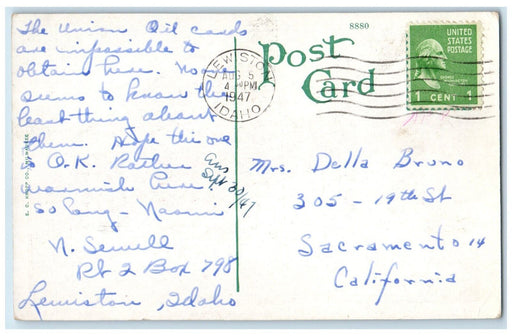 The Union Oil cards
are impossible to
obtain here. No
seems to know the
least thing about
them. Hope this one
is O.K. Rather
warmish here
so long - Naomi
N. Sewell
Rt 2 Box 798
Lewiston, Idaho
Ans
Sept 30/47
8880
Post
Card
LEWISTON
AUG 5
4 PM
1947
IDAHO
UNITED
STATES
POSTAGE
1 CENT 1
Mrs. Della Bruno
305 - 19th St
Sacramento 14
California